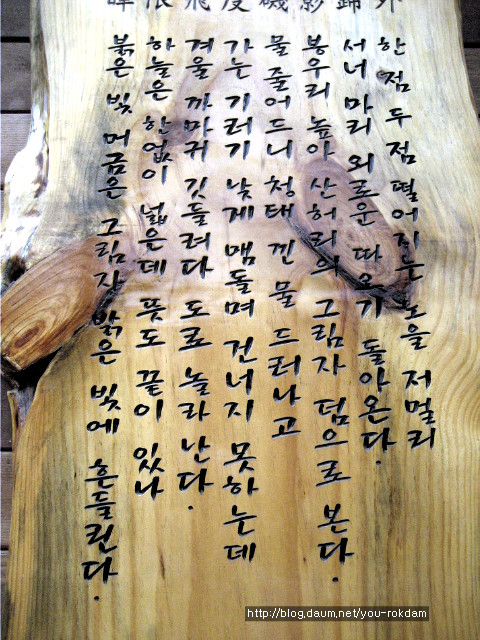 外 歸 影 磯 度 飛 限 暉
한 점 두 점 떨어지는 노을 저멀리
서너 마리 외로운 따오기 돌아온다.
봉우리 높아 산허리의 그림자 덤으로 본다.
물 줄어드니 청태 낀 물 드러나고
가는 기러기 낮게 맴돌며 건너지 못하는데
겨울 까마귀 깃들려다 도로 놀라 난다.
하늘은 한없이 넓은데 뜻도 끝이 있나
붉은 빛 머금은 그림자 밝은 빛에 흔들린다.
http://blog.daum.net/you-rokdam